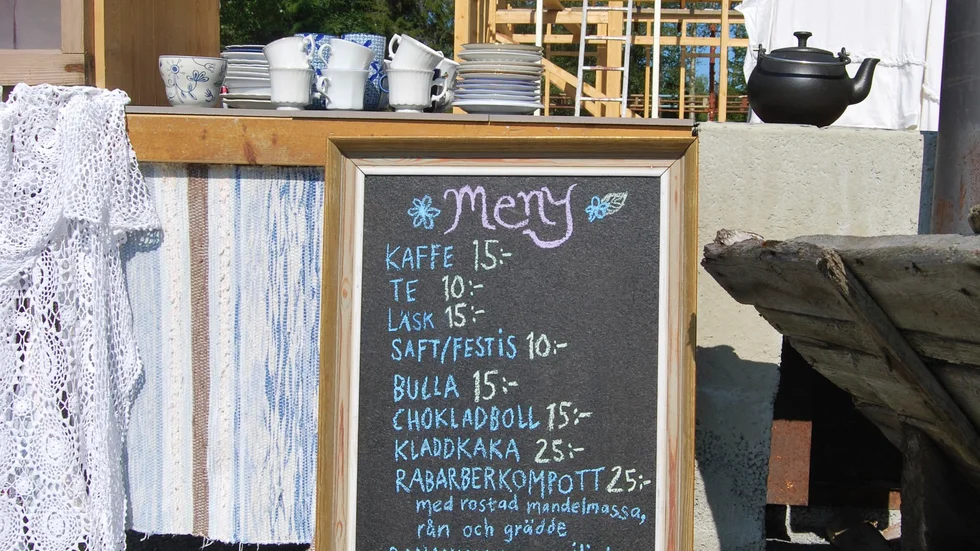 meny
KAFFE 15:-
TE 10:-
LÄSK 15:-
SAFT/FESTIS 10:-
BULLA 15:-
CHOKLADBOLL 15:-
KLADDKAKA 25:-
RABARBERKOMPOTT 25:-
med rostad mandelmassa,
rån och grädde